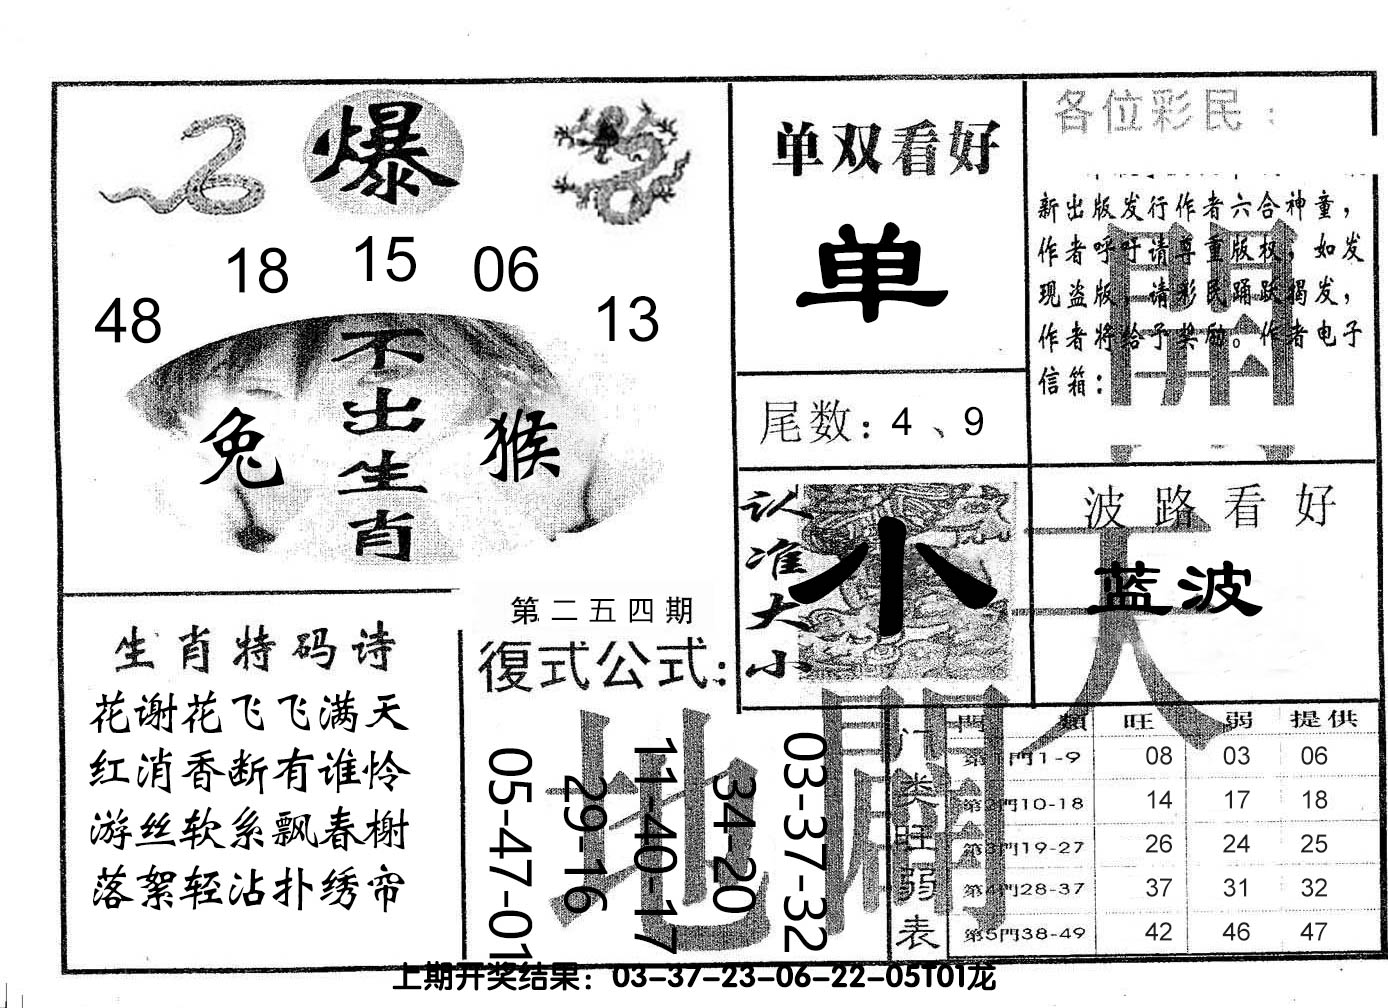 爆
48 18 15 06 13
不出生肖
兔 猴
单双看好
单
尾数：4、9
各位彩民：
新出版发行作者六合神童，
作者呼吁请尊重版权，如发
现盗版，请彩民踊跃揭发，
作者将给予奖励。作者电子
信箱：
開
认准大小
小
波路看好
蓝波
天
生肖特码诗
花谢花飞飞满天
红消香断有谁怜
游丝软系飘春榭
落絮轻沾扑绣帘
第二五四期
復式公式：
05-47-01
29-16
11-40-17
34-20
03-37-32
地
闢
门类旺弱表
門 類 旺 弱 提供
第1門1-9 08 03 06
第2門10-18 14 17 18
第3門19-27 26 24 25
第4門28-37 37 31 32
第5門38-49 42 46 47
上期开奖结果：03-37-23-06-22-05T01龙